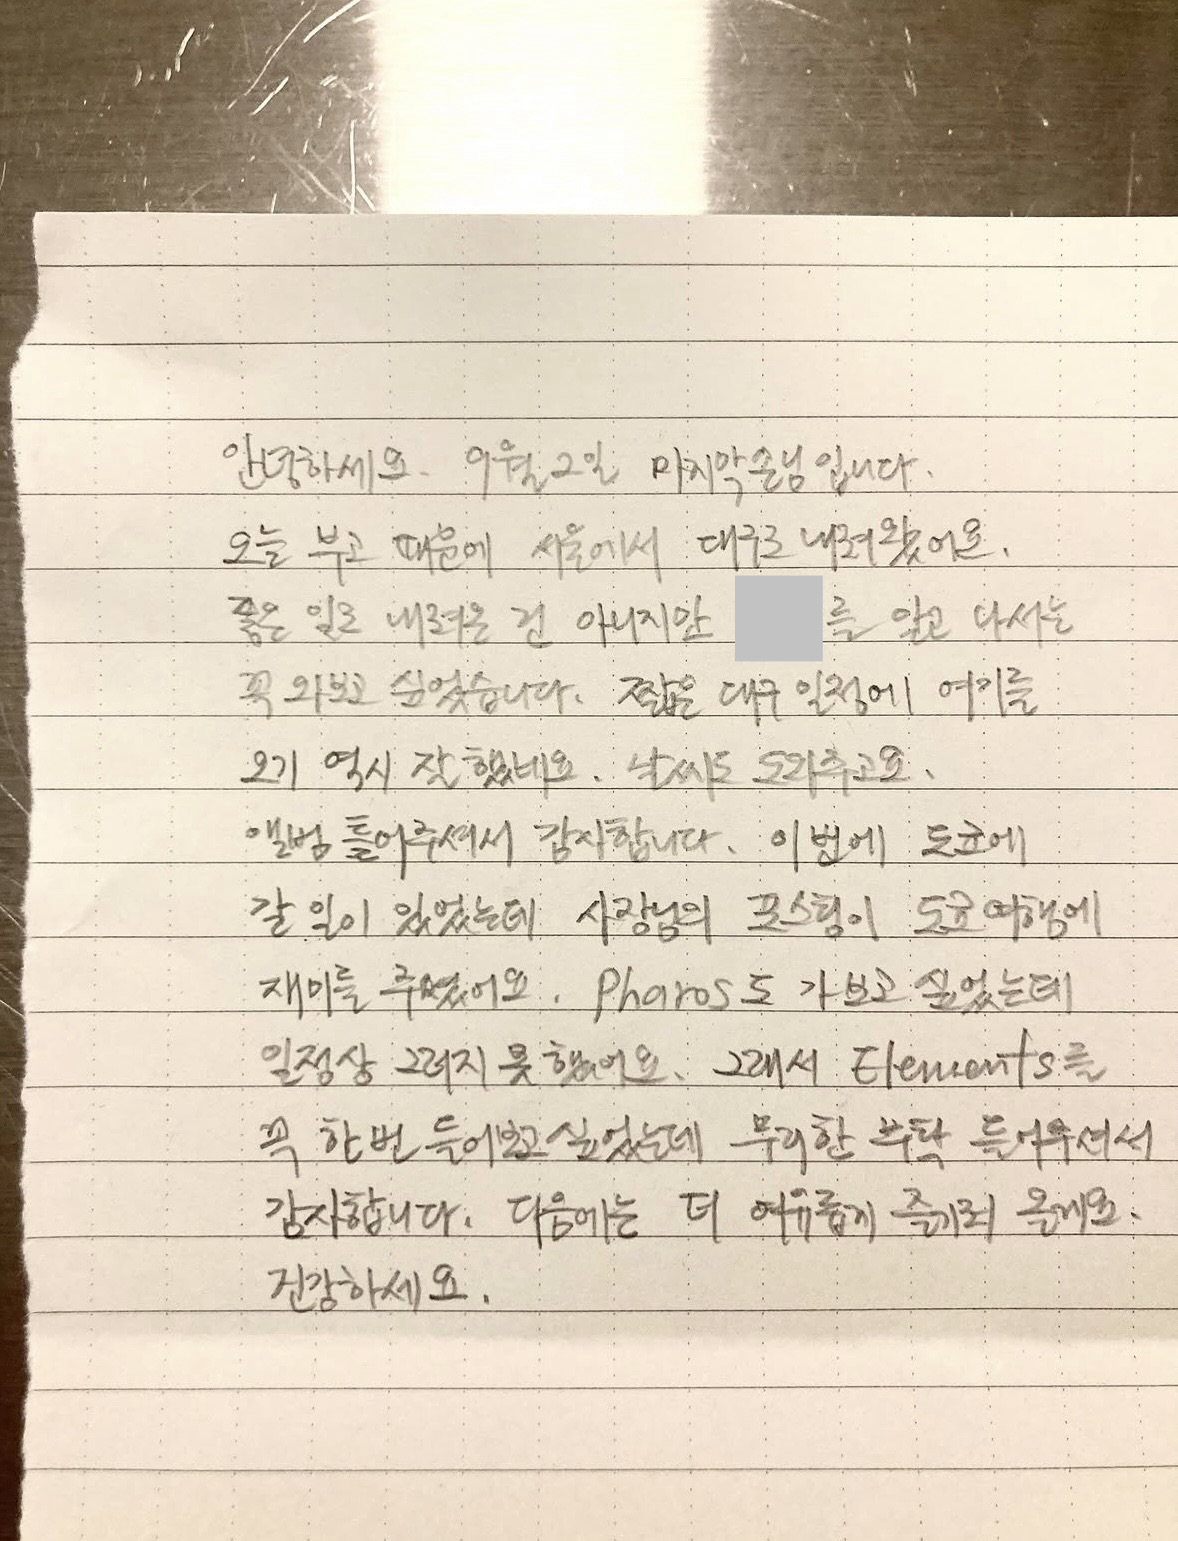 안녕하세요. 9월 2일 마지막 손님입니다.
오늘 부고 때문에 서울에서 대구로 내려왔어요.
좋은 일로 내려온 건 아니지만 를 알고 나서는
꼭 와보고 싶었습니다. 짧은 대구 일정에 여기를
오기 역시 잘했네요. 날씨도 도와주고요.
앨범 틀어주셔서 감사합니다. 이번에 도쿄에
갈 일이 있었는데 사장님의 포스팅이 도쿄여행에
재미를 주셨어요. Pharos도 가보고 싶었는데
일정상 그러지 못했어요. 그래서 Elements를
꼭 한번 들어보고 싶었는데 무리한 부탁 들어주셔서
감사합니다. 다음에는 더 여유롭게 즐기러 올게요.
건강하세요.